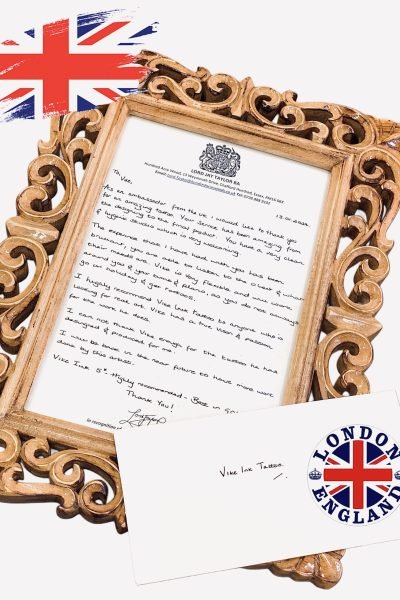 LORD JAY TAYLOR
To Vike,
As an ambassador from the UK I would like to thank you
for an amazing tattoo. Your service has been amazing from
the designing to the final product. You have a very clean
& hygenic studio which is very welcoming.
The experience that I have had with you has been
brilliant, you are able to listen to the client of what
their needs are. Vike is very flexible and will work
around you & your times & plans, as you do not always
go on holiday & get tattoos.
I highly recommend Vike Ink tattoo to anyone who is
looking for real art. Vike has a true vision & passion
for the work he does.
I can not thank Vike enough for the tattoo he has
designed & produced for me.
I will be back in the near future to have more work
done by this artist.
Vike Ink 5*. Highly recommended - Best in
Thank You!
in recognition
Vike Ink Tattoo
LONDON
ENGLAND